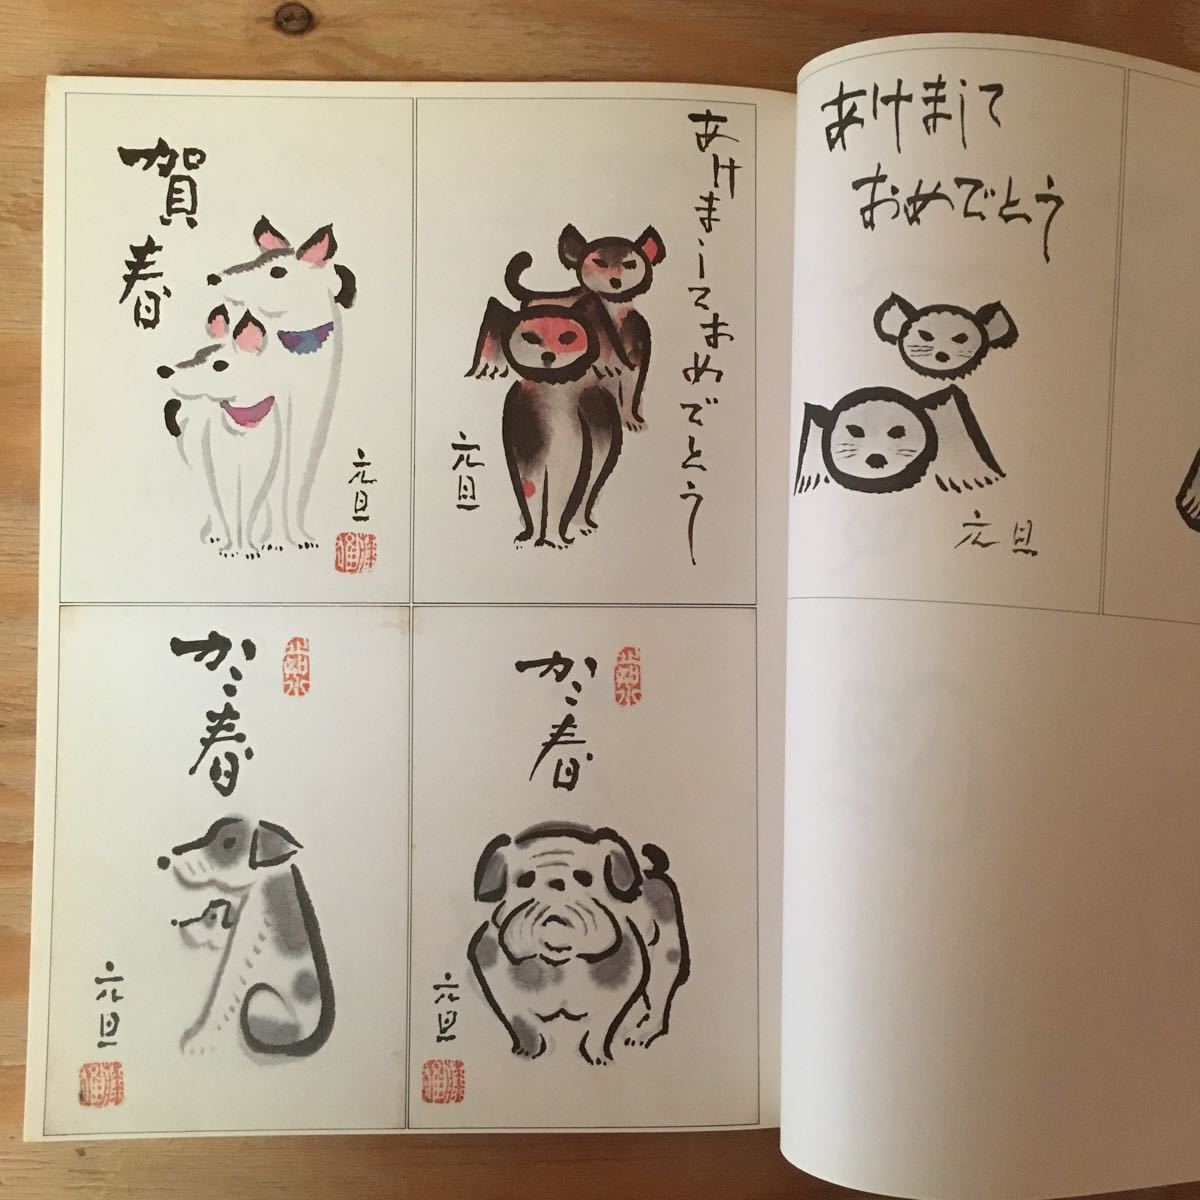 賀春
元旦
あけましておめでとう
元旦
がゝ春
元旦
がゝ春
元旦
あけまして
おめでとう
元旦